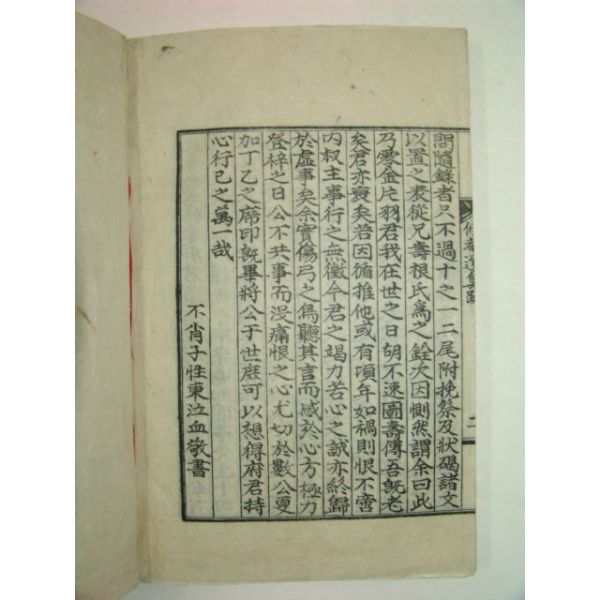 問隨錄者只不過十之一二尾附挽祭及狀碣諸文
以置之裘從兄壽根氏爲之銓次因惻然謂余曰此
乃零金片羽君我在世之日胡不速圖壽傳吾旣老
矣君亦衰矣若因循推他或有頃年如禍則恨不啻
內叔主事行之無徵今君之竭力苦心之誠亦終歸
於虛事矣余實傷弓之鳥聽其言而感於心方極力
登梓之日公不共事而沒痛恨之心尤切於數公更
加丁乙之席印旣畢將公于世庶可以想得府君持
心行己之萬一哉
不肖子性東泣血敬書
二